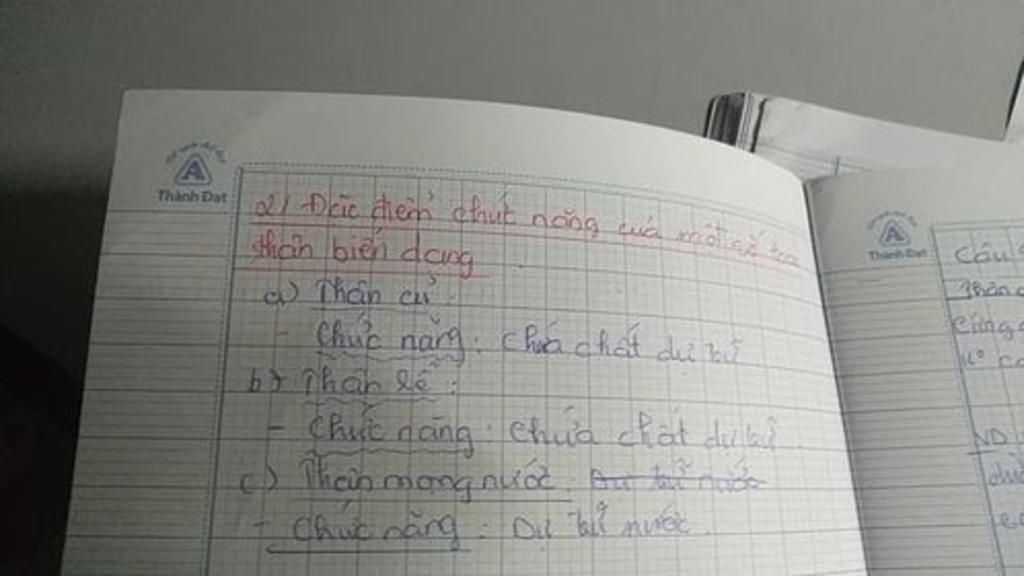 Thành Đạt
2/ Đặc điểm chức năng của một số
thân biến dạng
a) Thân củ:
- Chức năng: Chứa chất dự trữ
b) Thân rễ:
- Chức năng: Chứa chất dự trữ.
c) Thân mọng nước: Dự trữ nước
- Chức năng: Dự trữ nước.
Thành Đạt
Câu
Thân
Cứng
ND